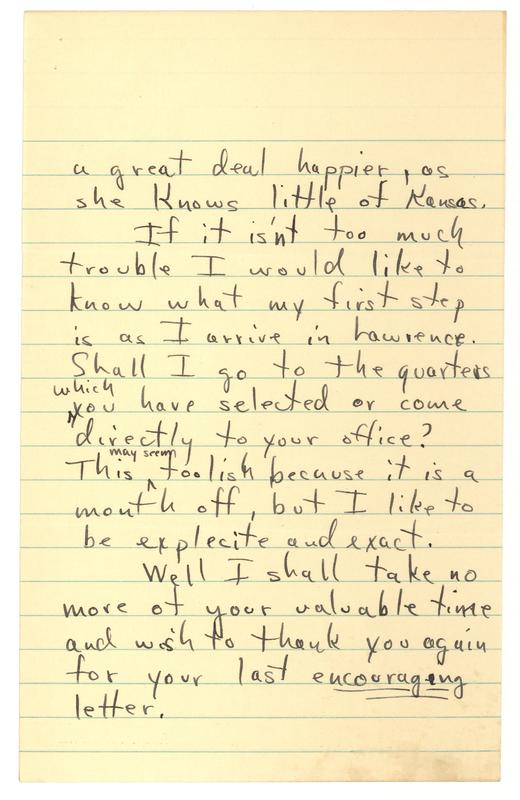 a great deal happier, as
she knows little of Kansas.
If it isn't too much
trouble I would like to
know what my first step
is as I arrive in Lawrence.
Shall I go to the quarters
which
you have selected or come
directly to your office?
may seem
This foolish because it is a
month off, but I like to
be explecite and exact.
Well I shall take no
more of your valuable time
and wish to thank you again
for your last encouraging
letter.